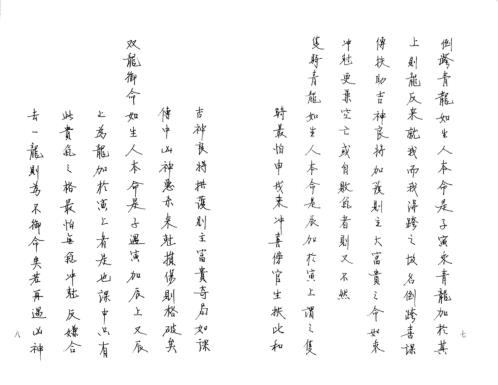 倒跨青龍如生人本命是子寅來青龍加於其
上則龍反來就我而我得跨之故名倒跨喜課
傳扶助吉神良將加護則主大富貴之命如來
冲尅更兼空亡或自敗氣者則又不然
隻騎青龍如生人本命是辰加於寅上謂之隻
騎最怕申戌來冲喜傳官生扶比和
七
吉神良將拱護則主富貴奇局如課
傳中凶神惡亦來尅損傷則格破矣
双龍御命如生人本命是子遇寅加辰上又辰
上為龍加於寅上者是也課中只有
此貴氣之格最怕無氣冲尅反嫌合
去一龍則為不御命矣若再遇凶神
八